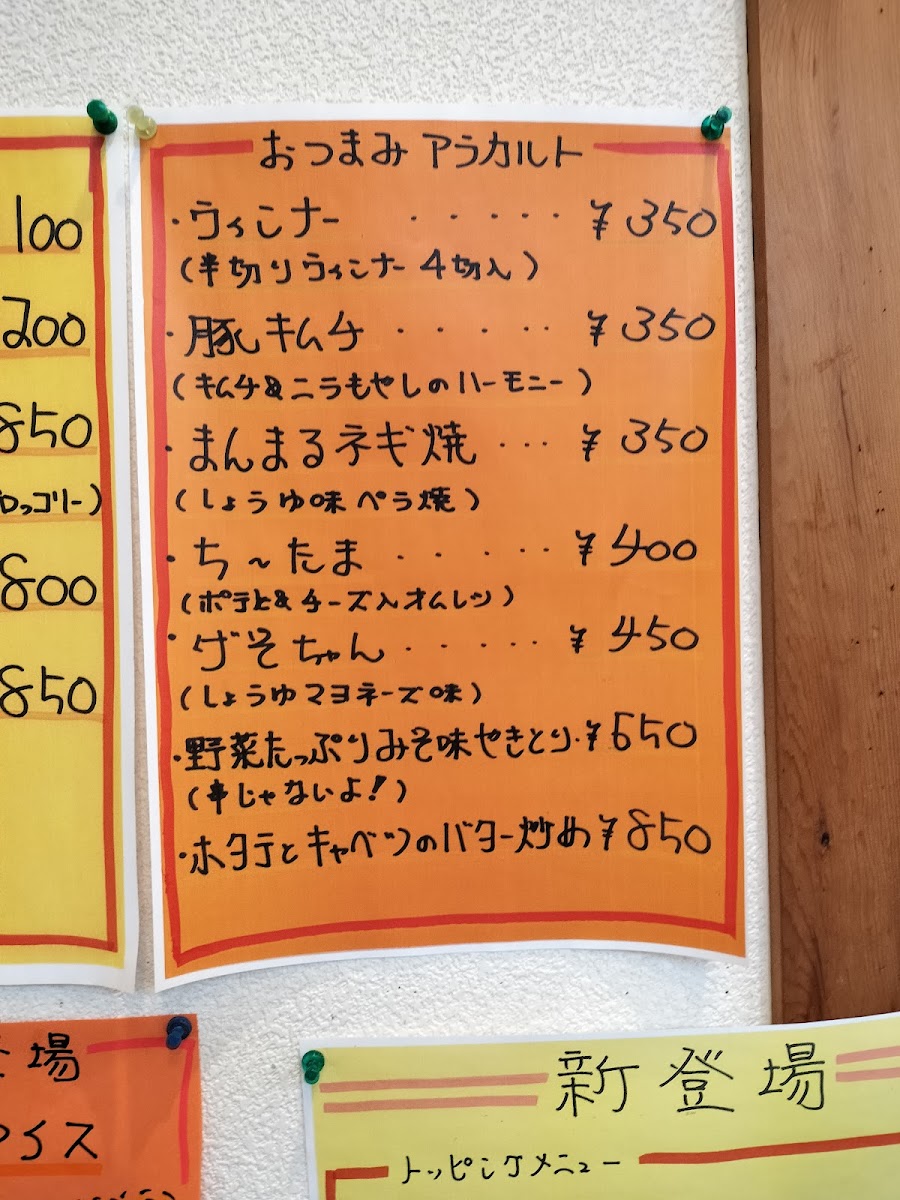 100
200
850
ロッコリー)
800
850
おつまみ アラカルト
・ウィンナー ・・・・・ ¥350
(半切りウィンナー 4切入)
・豚キムチ ・・・・・ ¥350
(キムチ&ニラもやしのハーモニー)
・まんまるネギ焼 ・・・ ¥350
(しょうゆ味 ペラ焼)
・ち〜たま ・・・・・ ¥400
(ポテト&チーズ入オムレツ)
・げそちゃん ・・・・・ ¥450
(しょうゆマヨネーズ味)
・野菜たっぷりみそ味やきとり・¥650
(串じゃないよ!)
・ホタテとキャベツのバター炒め¥850
場
アイス
新登場
トッピングメニュー